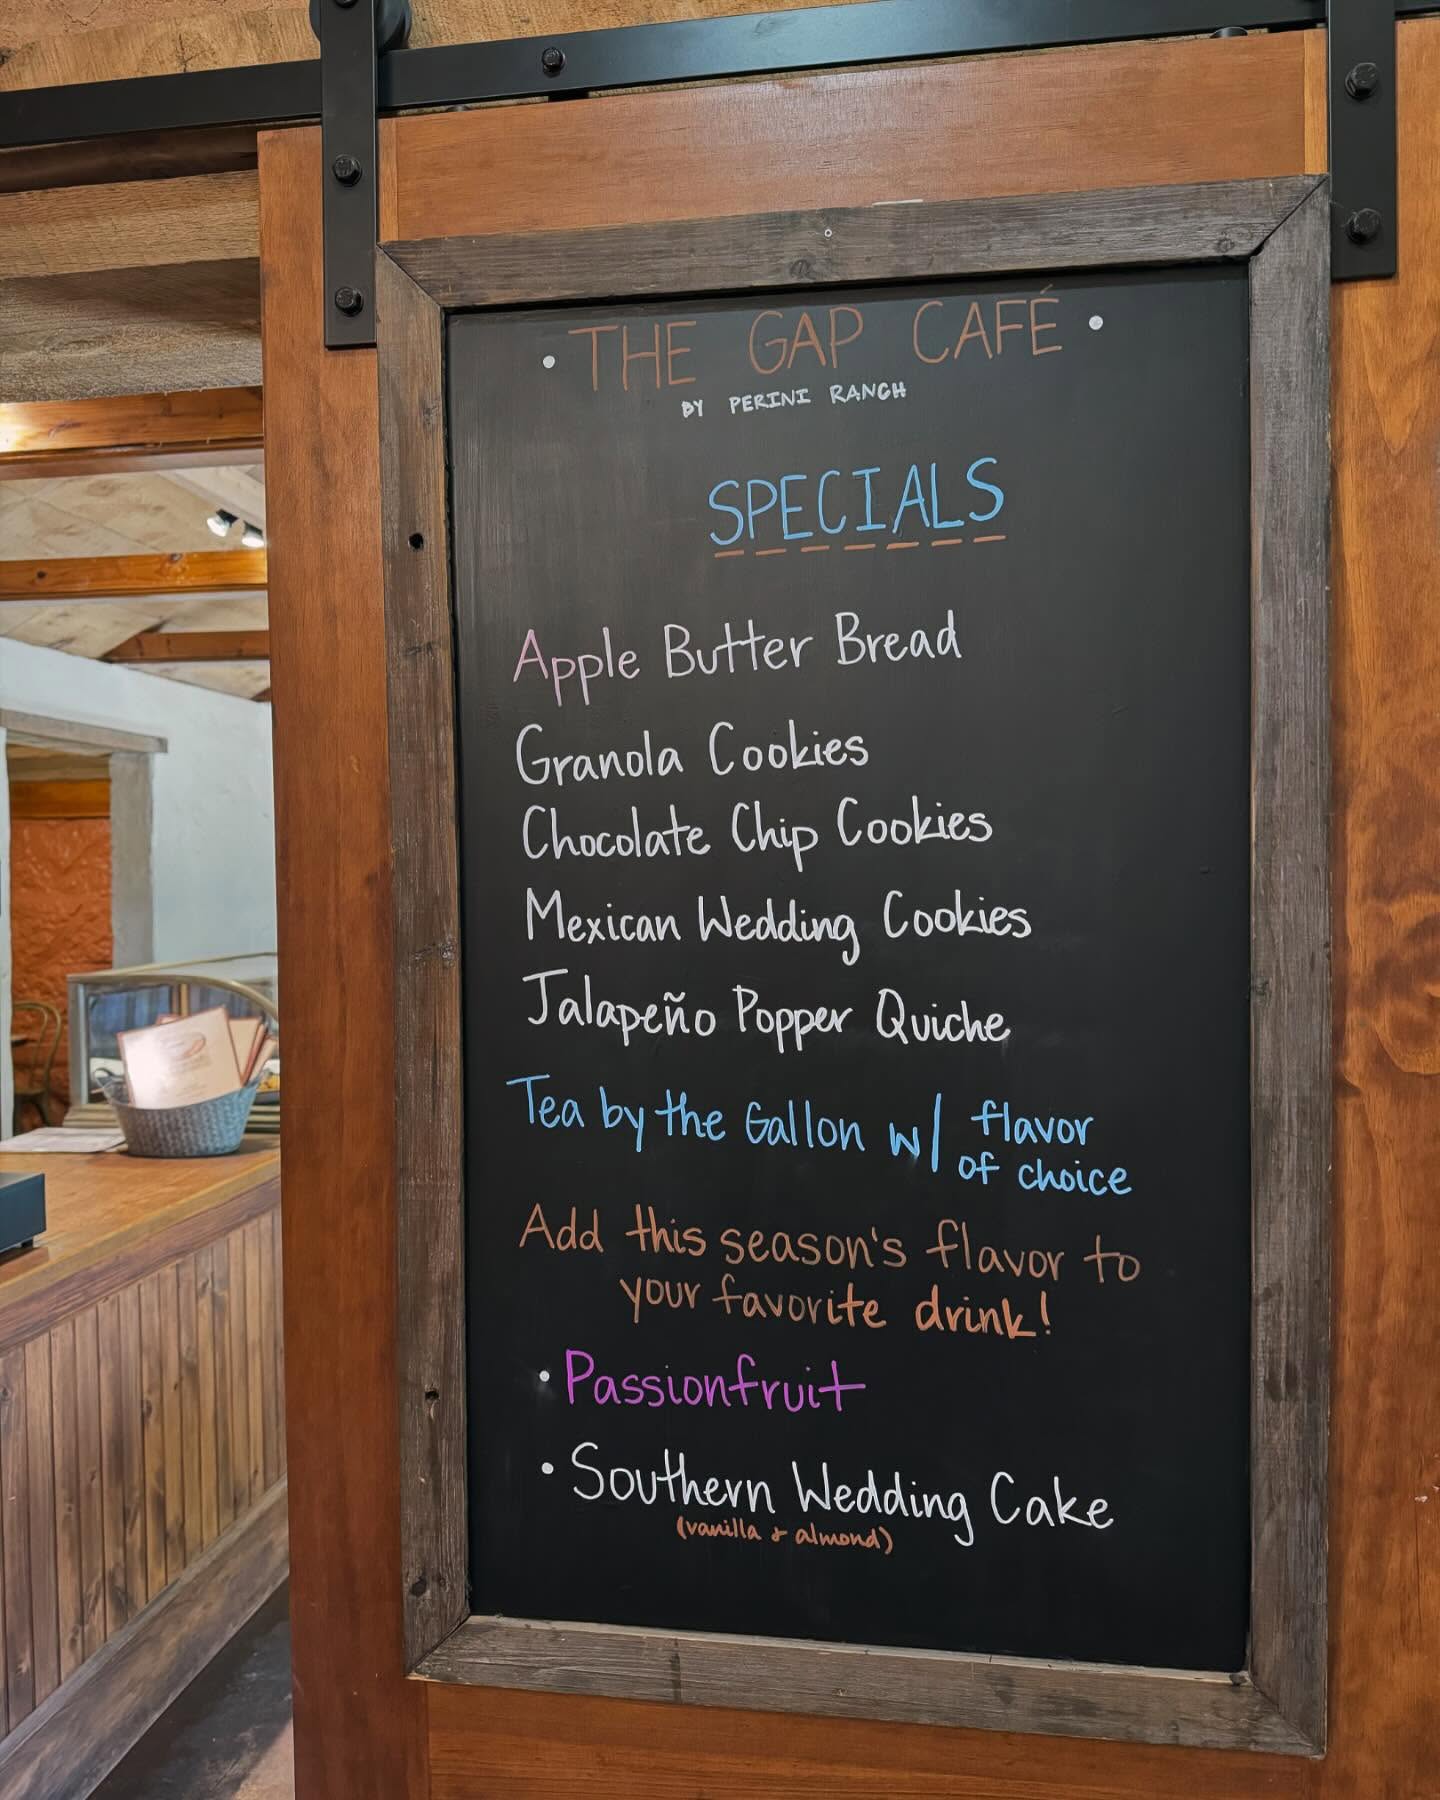 • THE GAP CAFÉ •
BY PERINI RANCH
SPECIALS
Apple Butter Bread
Granola Cookies
Chocolate Chip Cookies
Mexican Wedding Cookies
Jalapeño Popper Quiche
Tea by the Gallon w/ flavor
of choice
Add this season's flavor to
your favorite drink!
• Passionfruit
• Southern Wedding Cake
(vanilla & almond)